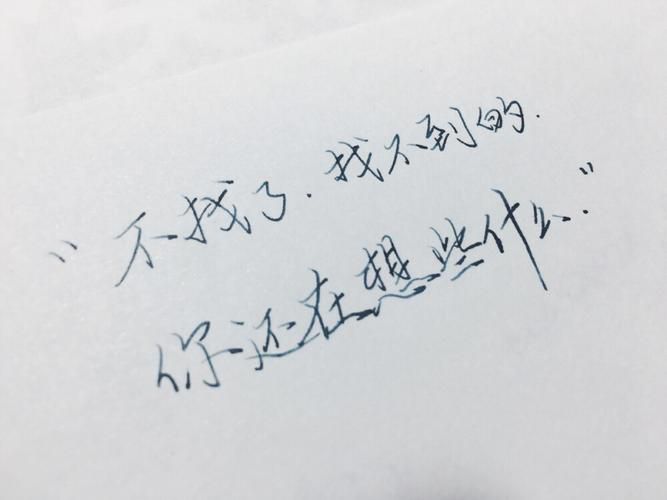 “不找了.找不到的.
你还在想些什么.”